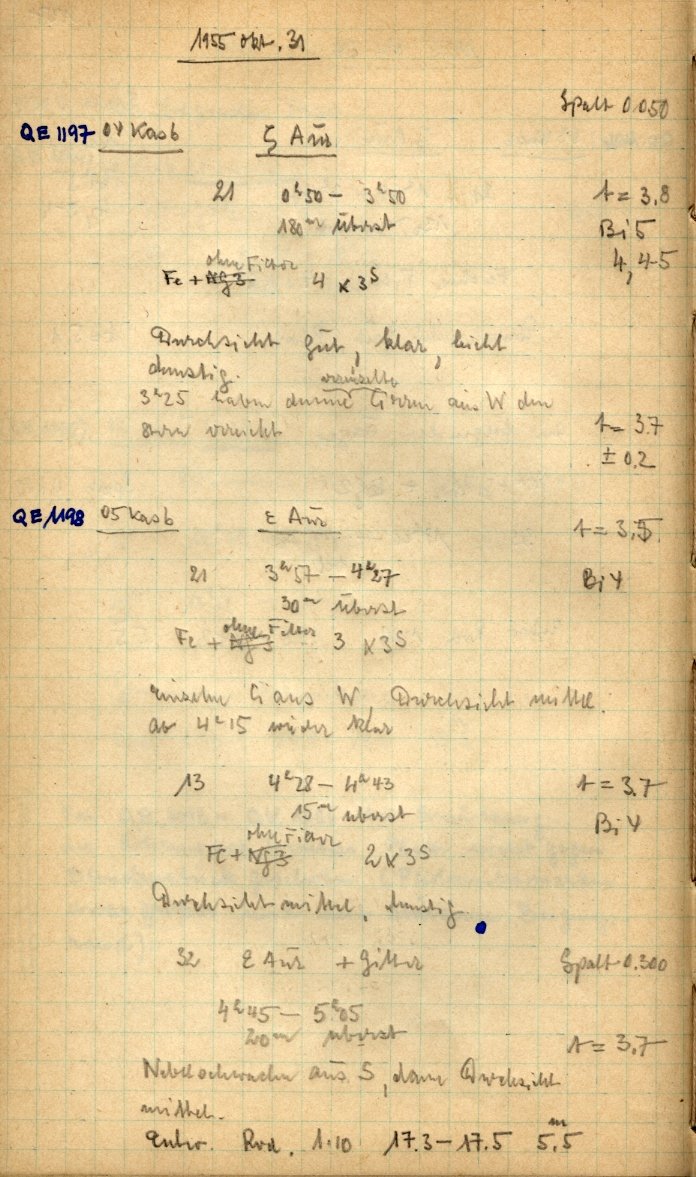 1955 Okt. 31
Spalt 0.050
QE 1197 04 Kasb ζ Aur
21 0ʰ50 – 3ʰ50 t = 3,8
180ᵐ überst Bi 5
ohne Filter 4,45
Fe + Ng3 4 x 3ˢ
Durchsicht gut, klar, leicht
dunstig.
vereinzelte
3ʰ25 haben dünne Cirren aus W den
Stern erreicht t = 3.7
± 0,2
QE 1198 05 Kasb ε Aur t = 3,5
21 3ʰ57 – 4ʰ27 Bi 4
30ᵐ überst
ohne Filter
Fe + Ng3 3 x 3ˢ
Einzelne Ci aus W, Durchsicht mittel.
ab 4ʰ15 wieder klar
13 4ʰ28 – 4ʰ43 t = 3.7
15ᵐ überst Bi 4
ohne Filter
Fe + Ng3 2 x 3ˢ
Durchsicht mittel, dunstig
32 ε Aur + Gitter Spalt 0.300
4ʰ45 – 5ʰ05
20ᵐ überst t = 3,7
Nebelschwaden aus S, dann Durchsicht
mittel.
Entw. Rod. 1:10 17.3 – 17.5 5,5ᵐ